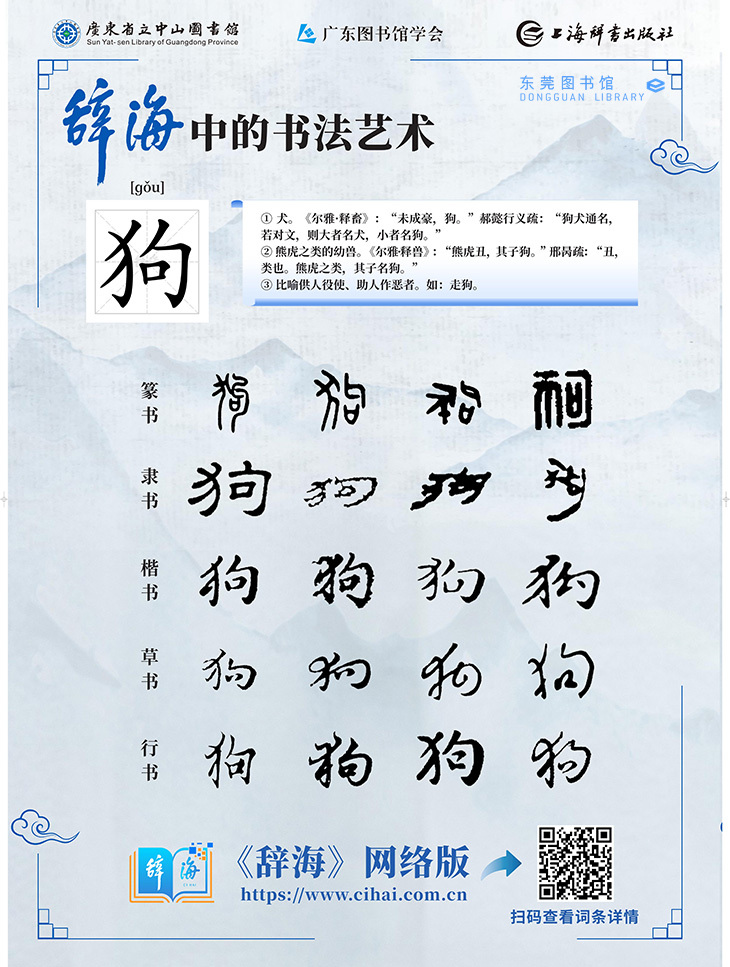 廣東省立中山圖書館
Sun Yat-sen Library of Guangdong Province
广东图书馆学会
上海辞书出版社
东莞图书馆
DONGGUAN LIBRARY
辞海中的书法艺术
[ɡǒu]
狗
① 犬。《尔雅·释畜》：“未成豪，狗。”郝懿行义疏：“狗犬通名，
若对文，则大者名犬，小者名狗。”
② 熊虎之类的幼兽。《尔雅·释兽》：“熊虎丑，其子狗。”邢昺疏：“丑，
类也。熊虎之类，其子名狗。”
③ 比喻供人役使、助人作恶者。如：走狗。
篆书 狗 狗 狗 狗
隶书 狗 狗 狗 狗
楷书 狗 狗 狗 狗
草书 狗 狗 狗 狗
行书 狗 狗 狗 狗
辞海
《辞海》网络版
https://www.cihai.com.cn
扫码查看词条详情